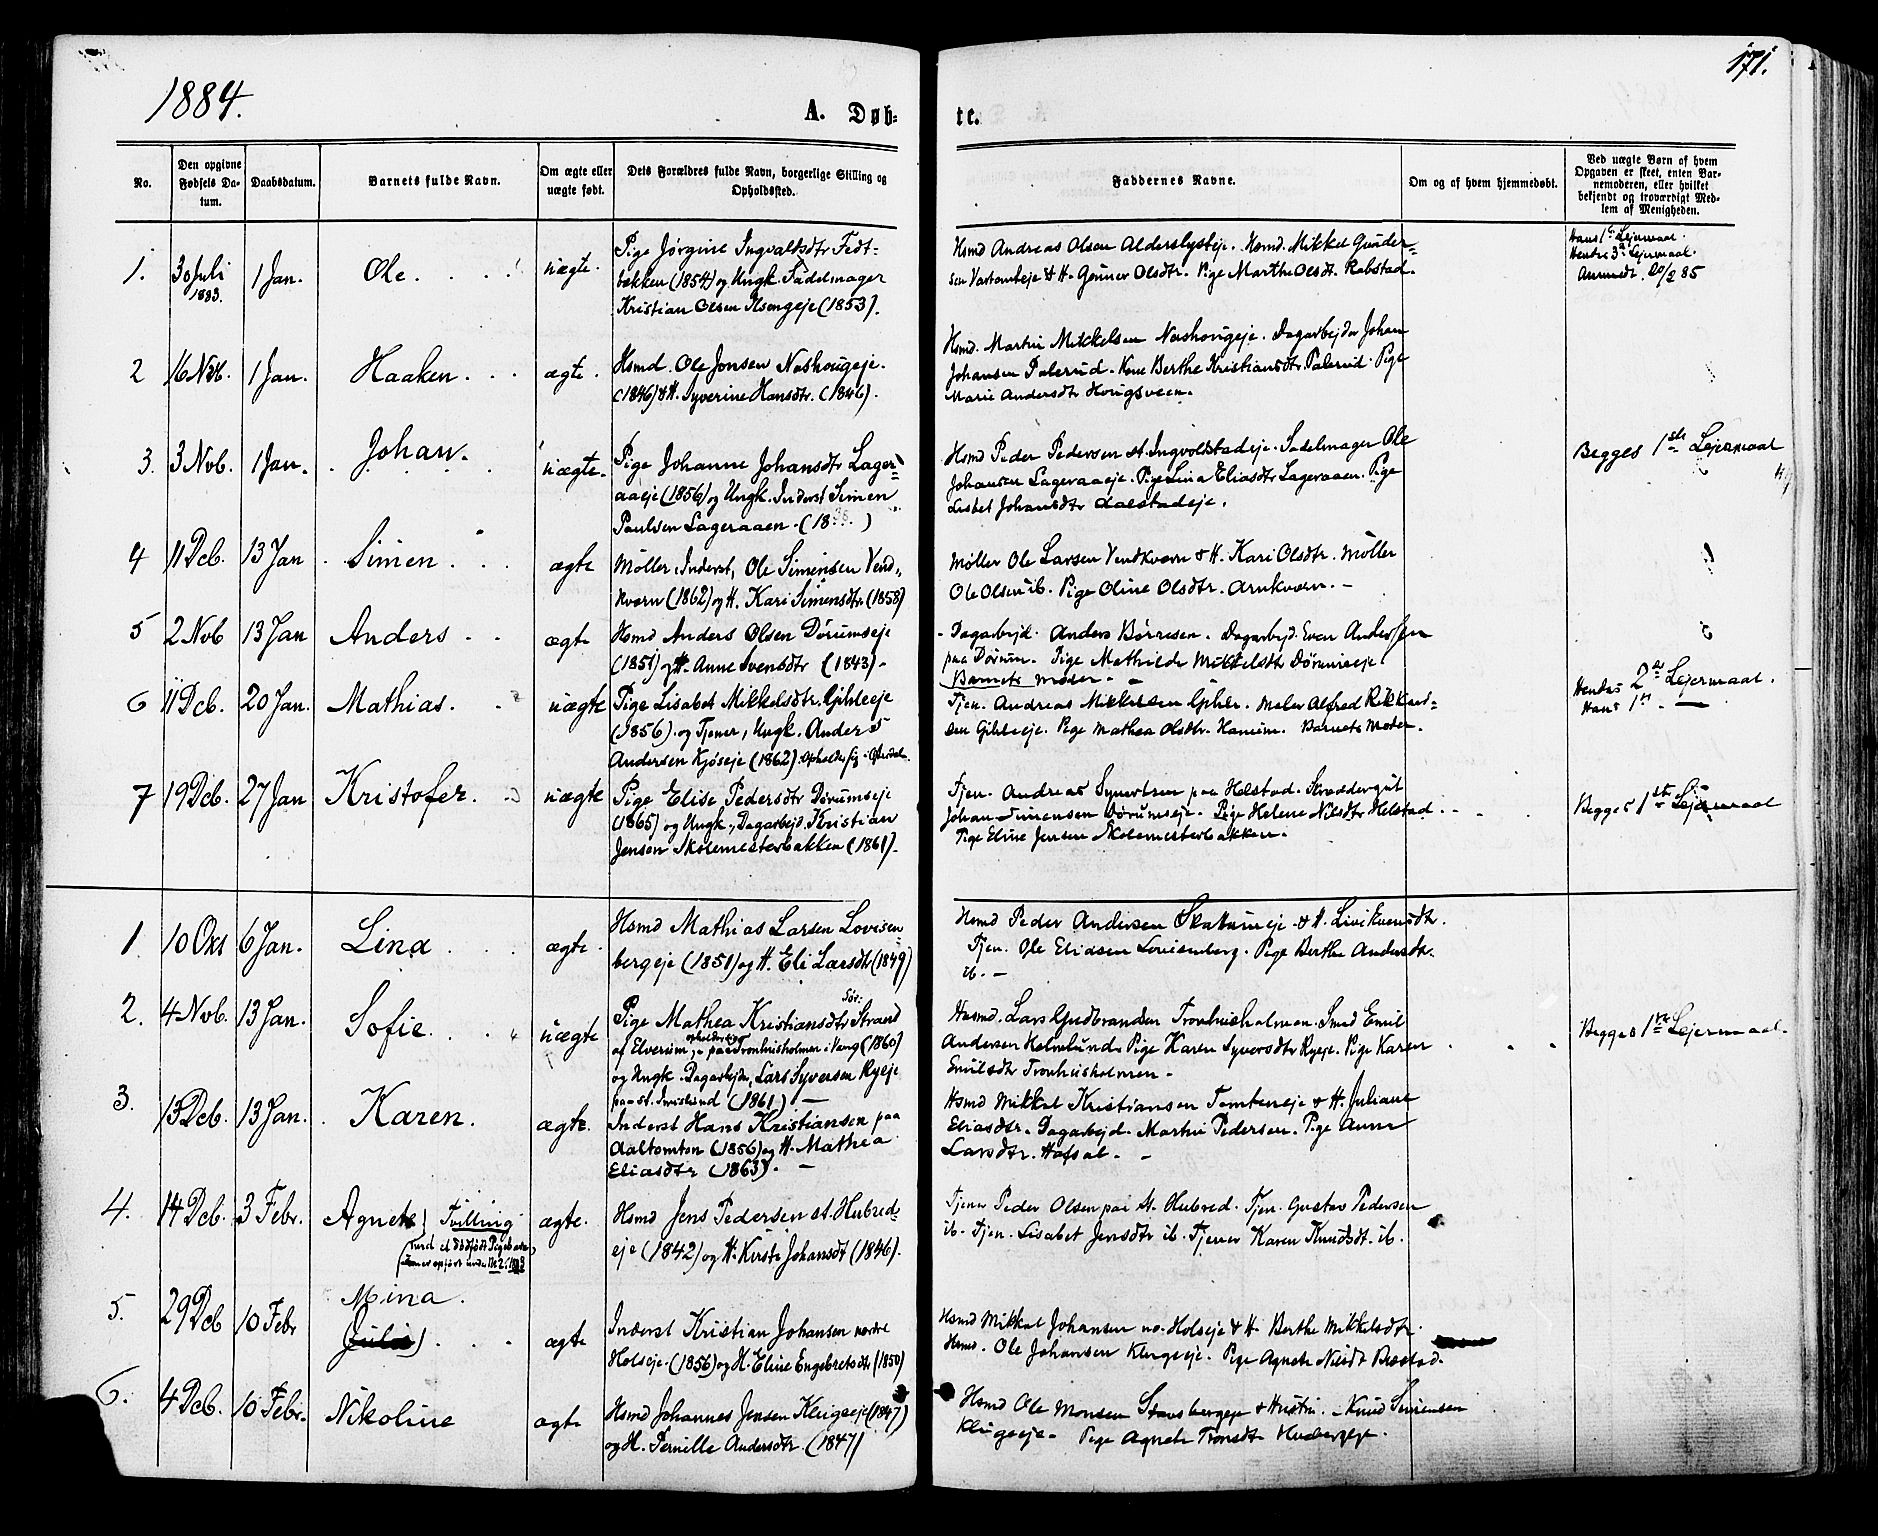 1884.
171.
A. Døb-
te.
No.
Den opgivne Fødsels Da-tum.
Daabsdatum.
Barnets fulde Navn.
Om ægte eller uægte født.
Dets Forældres fulde Navn, borgerlige Stilling og Opholdssted.
Faddernes Navne.
Om og af hvem hjemmedøbt.
Ved uægte Børn af hvem Opgaven er skeet, enten Bar-nemoderen, eller hvilket bekjendt og troværdigt Med-lem af Menigheden.
1. 30 Juli 1883. 1 Jan. Ole. uægte.
Pige Jørgine Ingvaldsdtr Fedt-
bækken (1854) og Ungk. Sadelmager
Kristian Olsen (1853).
Hsmd Andreas Olsen Alderslysteje. Hsmd. Mikkel Gunder-
sen & H. Gunner Olsdtr. Pige Marthe Olsdt. Rabstad.
Hans 1ste Lejermaal.
Hendes 3die Lejermaal.
Anmeldt 20/2 85
2 16 Nov. 1 Jan. Haaken. ægte.
Hsmd. Ole Jonsen Nashougeje.
(1846) & H. Syverine Hansdtr. (1846).
Hsmd. Martin Mikkelsen Nashougeje. Dagarbejder Johan
Johansen Palerud. Kone Berthe Kristiansdtr Palerud. Pige
Marie Andersdtr Hougsveen.
3. 3 Nov. 1 Jan. Johan. uægte.
Pige Johanne Johansdtr Lager-
aaeje (1856) og Ungk. Inderst Simen
Paulsen Lageraaen. (18 )
Hsmd Peder Pedersen st. Ingvoldstadeje. Sadelmager Ole
Johansen Lageraaeje. Pige Lina Eliasdtr Lageraaen. Pige
Lisbet Johansdtr Aalstadeje.
Begges 1ste Lejermaal
4 11 Dcb. 13 Jan Simen. ægte
Møller, Inderst, Ole Simensen Vend-
kvern (1862) og H. Kari Simensdtr. (1858)
Møller Ole Larsen Vendkvern & H. Kari Olsdtr. Møller
Ole Olsen ib. Pige Oline Olsdtr. Arnkvern. -
5 2 Nov 13 Jan Anders. ægte
Hsmd Anders Olsen Dørumseje
(1851) og H. Anne Svensdtr (1843).
Dagarbejd. Anders Børresen. Dagarbejd. Even Andersen
paa Dørum. Pige Mathilde Mikkelsdtr Dørumseje
Barnets Moder.
6 11 Dcb. 20 Jan. Mathias. uægte
Pige Lisabet Mikkelsdtr. Gihleeje
(1856). og Tjener, Ungk. Anders
Andersen Kjøseje (1862). Opholder sig i Østerdalen.
Tjen. Andreas Mikkelsen Gihle. Maler Alfred Rikkard-
sen Gihleeje. Pige Mathea Olsdtr. Hanum. Barnets Moder.
Hendes 2det Lejermaal.
Hans 1ste —
7 19 Dcb. 27 Jan Kristofer. uægte
Pige Elise Pedersdtr Dørumseje
(1865) og Ungk., Dagarbejd. Kristian
Jensen Skolemesterbakken (1861).
Tjen. Andreas Syvertsen paa Helstad. Skræddergut
Johan Simensen Dørumseje. Pige Helene Nilsdtr Helstad.
Pige Eline Jensen Skolemesterbakken.
Begges 1ste Lejermaal
1. 10 Okt 6 Jan. Lina ægte.
Hsmd Mathias Larsen Lovisen-
bergeje (1851) og H. Eli Larsdtr (1849)
Hsmd Peder Andersen & H. Livi Evensdtr.
Tjen. Ole Elidsen Louisenberg. Pige Berthe Andersdtr.
ib. -
2. 4 Nov. 13 Jan. Sofie. uægte
Pige Mathea Kristiansdtr Sør: Strand
af Elverum, opholder sig paa Tronhusholmen i Vang (1860)
og Ungk. Dagarbejder, Lars Syversen Ryeje
paa st. (1861). -
Husmd. Lars Gudbrandsen Tronhusholmen. Smed Emil
Andersen Holmlund. Pige Karen Syversdtr Ryeje. Pige Karen
Emilsdtr Tronhusholmen -
Begges 1ste Lejermaal.
3. 15 Dcb. 13 Jan. Karen. ægte.
Inderst Hans Kristiansen paa
Aaltomten (1856) og H. Mathea
Eliasdtr (1863). -
Hsmd Mikkel Kristiansen Tomteneje & H. Juliane
Eliasdtr. Dagarbejd. Martin Pedersen. Pige Anne
Larsdtr. Hafsal. -
4. 14 Dcb. 3 Febr. Agnete Tvilling ægte.
(med et dødfødt Pigebarn,
opført under No 2. )
Hsmd Jens Pedersen st. Hubred-
eje (1842) og H. Kirsti Johansdt (1846).
Tjener Peder Olsen paa st. Hubred. Tjen. Gustav Pedersen
ib. Tjen. Lisabet Jensdtr ib. Tjener Karen Knudsdt. ib.
5. 29 Dcb 10 Febr Mina.
(Julie) ægte
Inderst Kristian Johansen nordre
Holseje (1856) og H. Eline Engebretsdtr (1850)
Hsmd Mikkel Johansen no. Holseje & H. Berthe Mikkelsdtr.
Hsmd. Ole Johansen Klugseje. Pige Agnete Nilsdt
6. 4 Dcb. 10 Febr. Nikoline ægte
Hsmd Johannes Jensen Klugseje (1847)
og H. Pernille Andersdtr. (1847)
Hsmd Ole Monsen Stavsbergeje & Hustru. Knud Simensen
Klugseje. Pige Agnete Tronsdt